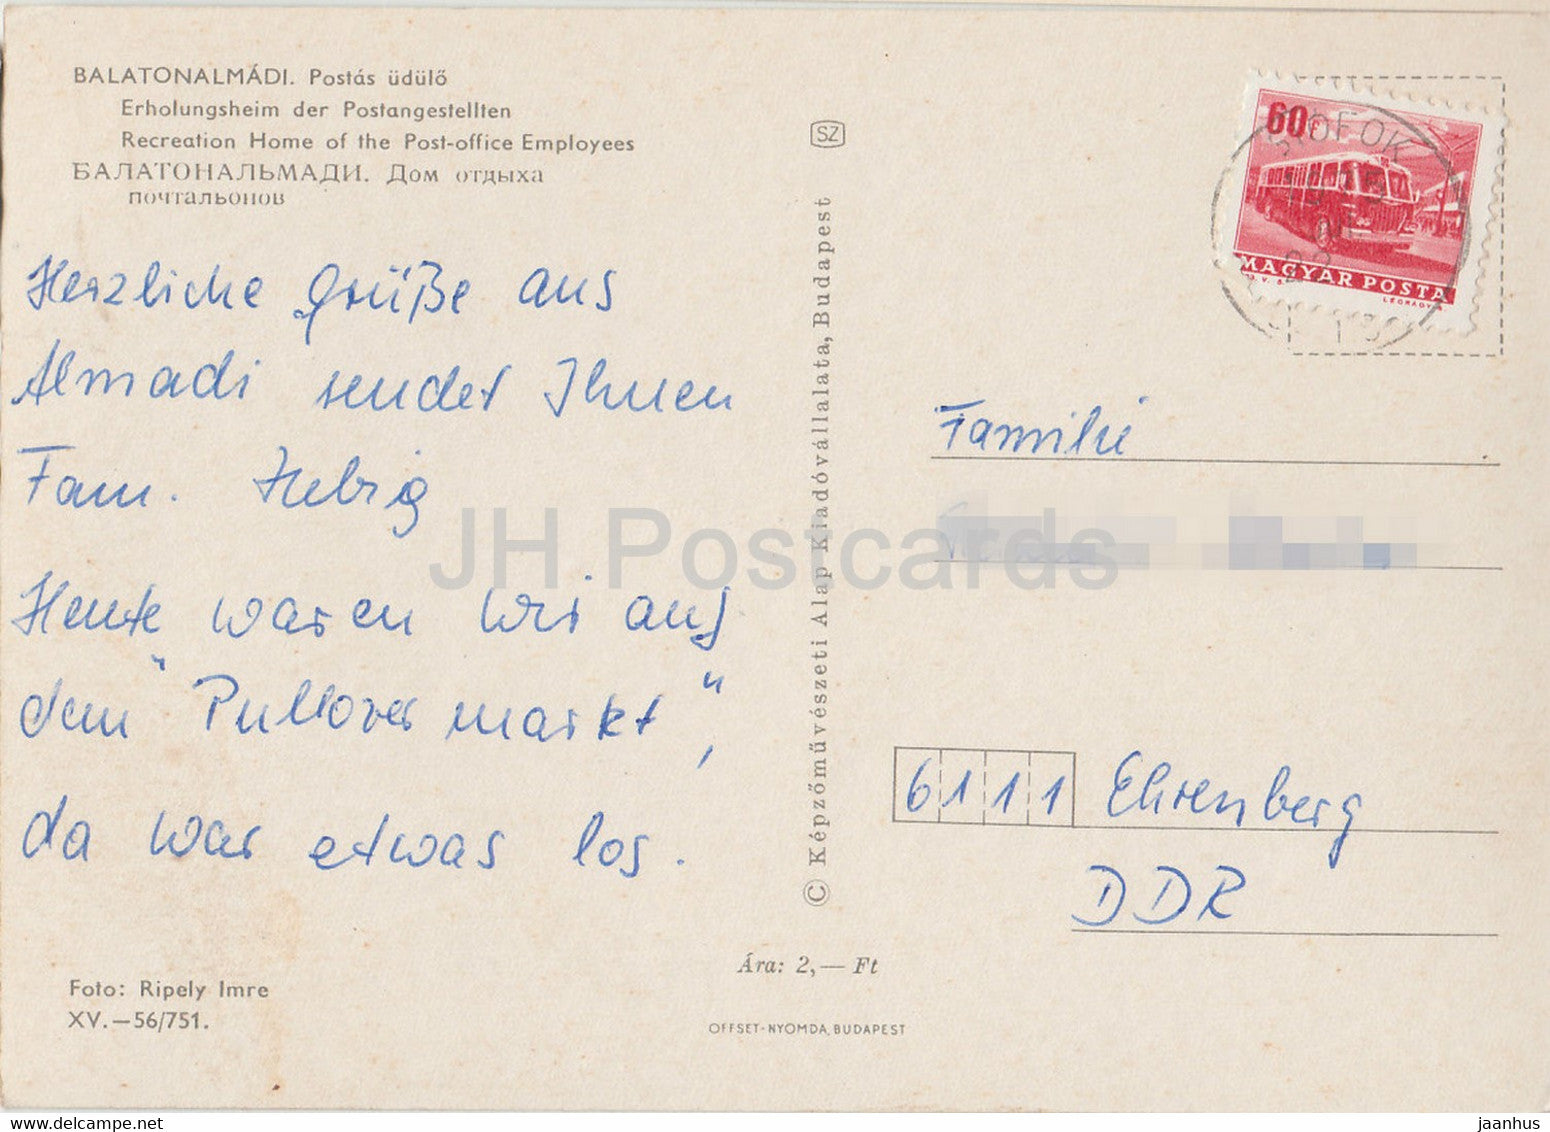 BALATONALMÁDI. Postás üdülő
Erholungsheim der Postangestellten
Recreation Home of the Post-office Employees
БАЛАТОНАЛЬМАДИ. Дом отдыха
почтальонов
Herzliche Grüße aus
Almadi sendet Ihnen
Fam. Helbig
Heute waren wir auf
dem "Pullovermarkt",
da war etwas los.
Foto: Ripely Imre
XV.—56/751.
SZ
© Képzőművészeti Alap Kiadóvállalata, Budapest
Ára: 2,— Ft
OFFSET-NYOMDA, BUDAPEST
60f
SIÓFOK
MAGYAR POSTA
Familie
6111 Ehrenberg
DDR
JH Postcards
delcampe.net
jaanhus